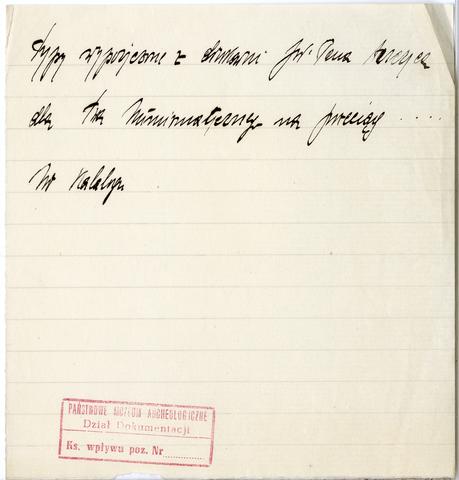 Typy wypożyczone z drukarni
dla Twa Numizmatycznego na
Nr Katalogu
PAŃSTWOWE MUZEUM ARCHEOLOGICZNE
Dział Dokumentacji
Ks. wpływu poz. Nr